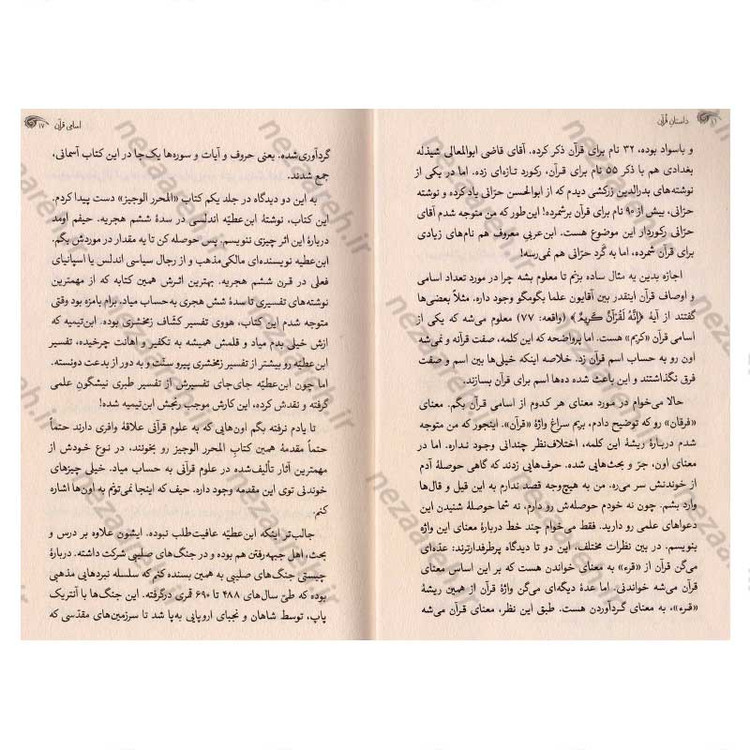 داستان قرآن
و باسواد بوده، ۳۲ نام برای قرآن ذکر کرده. آقای قاضی ابوالمعالی شیذله
بغدادی هم با ذکر ۵۵ نام برای قرآن، رکورد تازه‌ای زده. اما در یکی از
نوشته‌های بدرالدین زرکشی دیدم که از ابوالحسن حرّانی یاد کرده و نوشته
حرّانی، بیش از ۹۰ نام برای قرآن برشمرده! این‌طور که من متوجه شدم آقای
حرّانی رکورددار این موضوع هست. ابن‌عربی معروف هم نام‌های زیادی
برای قرآن شمرده، اما به گَرد حرّانی هم نمی‌رسه!
اجازه بدین یه مثال ساده بزنم تا معلوم بشه چرا در مورد تعداد اسامی
و اوصاف قرآن اینقدر بین آقایون علما بگومگو وجود داره. مثلاً بعضی‌ها
گفتند از آیهٔ ﴿إِنَّهُ لَقُرْآنٌ كَرِيمٌ﴾ (واقعه: ۷۷) معلوم می‌شه که یکی از
اسامی قرآن «کریم» هست. اما پرواضحه که این کلمه، صفت قرآنه و نمی‌شه
اون رو به حساب اسم قرآن زد. خلاصه اینکه خیلی‌ها بین اسم و صفت
فرق نگذاشتند و این باعث شده ده‌ها اسم برای قرآن بسازند.
حالا می‌خوام در مورد معنای هر کدوم از اسامی قرآن بگم. معنای
«فرقان» رو که توضیح دادم، بریم سراغ واژهٔ «قرآن». اینجور که من متوجه
شدم دربارهٔ ریشهٔ این کلمه، اختلاف‌نظر چندانی وجود نداره. اما در
معنای اون، جرّ و بحث‌هایی شده. حرف‌هایی زدند که گاهی حوصلهٔ آدم
از خوندنش سر می‌ره. من به هیچ‌وجه قصد ندارم به این قیل و قال‌ها
وارد بشم. چون نه خودم حوصله‌ش رو دارم، نه شما حوصلهٔ شنیدن این
دعواهای علمی رو دارید. فقط می‌خوام چند خط دربارهٔ معنای این واژه
بنویسم. در بین نظرات مختلف، این دو تا دیدگاه پرطرفدارترند: عده‌ای
می‌گن قرآن از «قرء» به معنای خواندن هست که بر این اساس معنای
قرآن می‌شه خواندنی. اما عدهٔ دیگه‌ای می‌گن واژهٔ قرآن از همین ریشهٔ
«قرء»، به معنای گردآوردن هست. طبق این نظر، معنای قرآن می‌شه
اسامی قرآن ۱۷
گردآوری شده. یعنی حروف و آیات و سوره‌ها یک‌جا در این کتاب آسمانی،
جمع شدند.
به این دو دیدگاه در جلد یکم کتاب «المحرر الوجیز» دست پیدا کردم.
این کتاب، نوشتهٔ ابن‌عطیّه اندلسی در سدهٔ ششم هجریه. حیفم اومد
دربارهٔ این اثر چیزی ننویسم. پس حوصله کن تا یه مقدار در موردش بگم.
ابن‌عطیه نویسنده‌ای مالکی‌مذهب و از رجال سیاسی اندلس یا اسپانیای
فعلی در قرن ششم هجریه. بهترین اثرش همین کتابه که از مهمترین
نوشته‌های تفسیری تا سدهٔ شش هجری به‌حساب میاد. برام بامزه بود وقتی
متوجه شدم این کتاب، هووی تفسیر کشّاف زمخشری بوده. ابن‌تیمیه که
ازش خیلی بدم میاد و قلمش همیشه به تکفیر و اهانت چرخیده، تفسیر
ابن‌عطیّه رو بیشتر از تفسیر زمخشری پیرو سنّت و به دور از بدعت دونسته.
اما چون ابن‌عطیّه جای‌جای تفسیرش از تفسیر طبری نیشگونِ علمی
گرفته و نقدش کرده، این کارش موجب رنجش ابن‌تیمیه شده!
تا یادم نرفته بگم اون‌هایی که به علوم قرآنی علاقهٔ وافری دارند حتماً
حتماً مقدمهٔ همین کتاب المحرر الوجیز رو بخونند، در نوع خودش از
مهمترین آثار تألیف‌شده در علوم قرآنی به حساب میاد. خیلی چیزهای
خوندنی توی این مقدمه وجود داره. حیف که اینجا نمی‌تونم به اون‌ها اشاره
کنم.
جالب‌تر اینکه ابن‌عطیّه عافیت‌طلب نبوده. ایشون علاوه بر درس و
بحث، اهل جبهه‌رفتن هم بوده و در جنگ‌های صلیبی شرکت داشته. دربارهٔ
چیستیِ جنگ‌های صلیبی به همین بسنده کنم که سلسله نبردهایی مذهبی
بوده که طیّ سال‌های ۴۸۸ تا ۶۹۰ قمری درگرفته. این جنگ‌ها با آنتریک
پاپ، توسط شاهان و نجبای اروپایی به‌پا شد تا سرزمین‌های مقدّسی که
nezaareh.ir